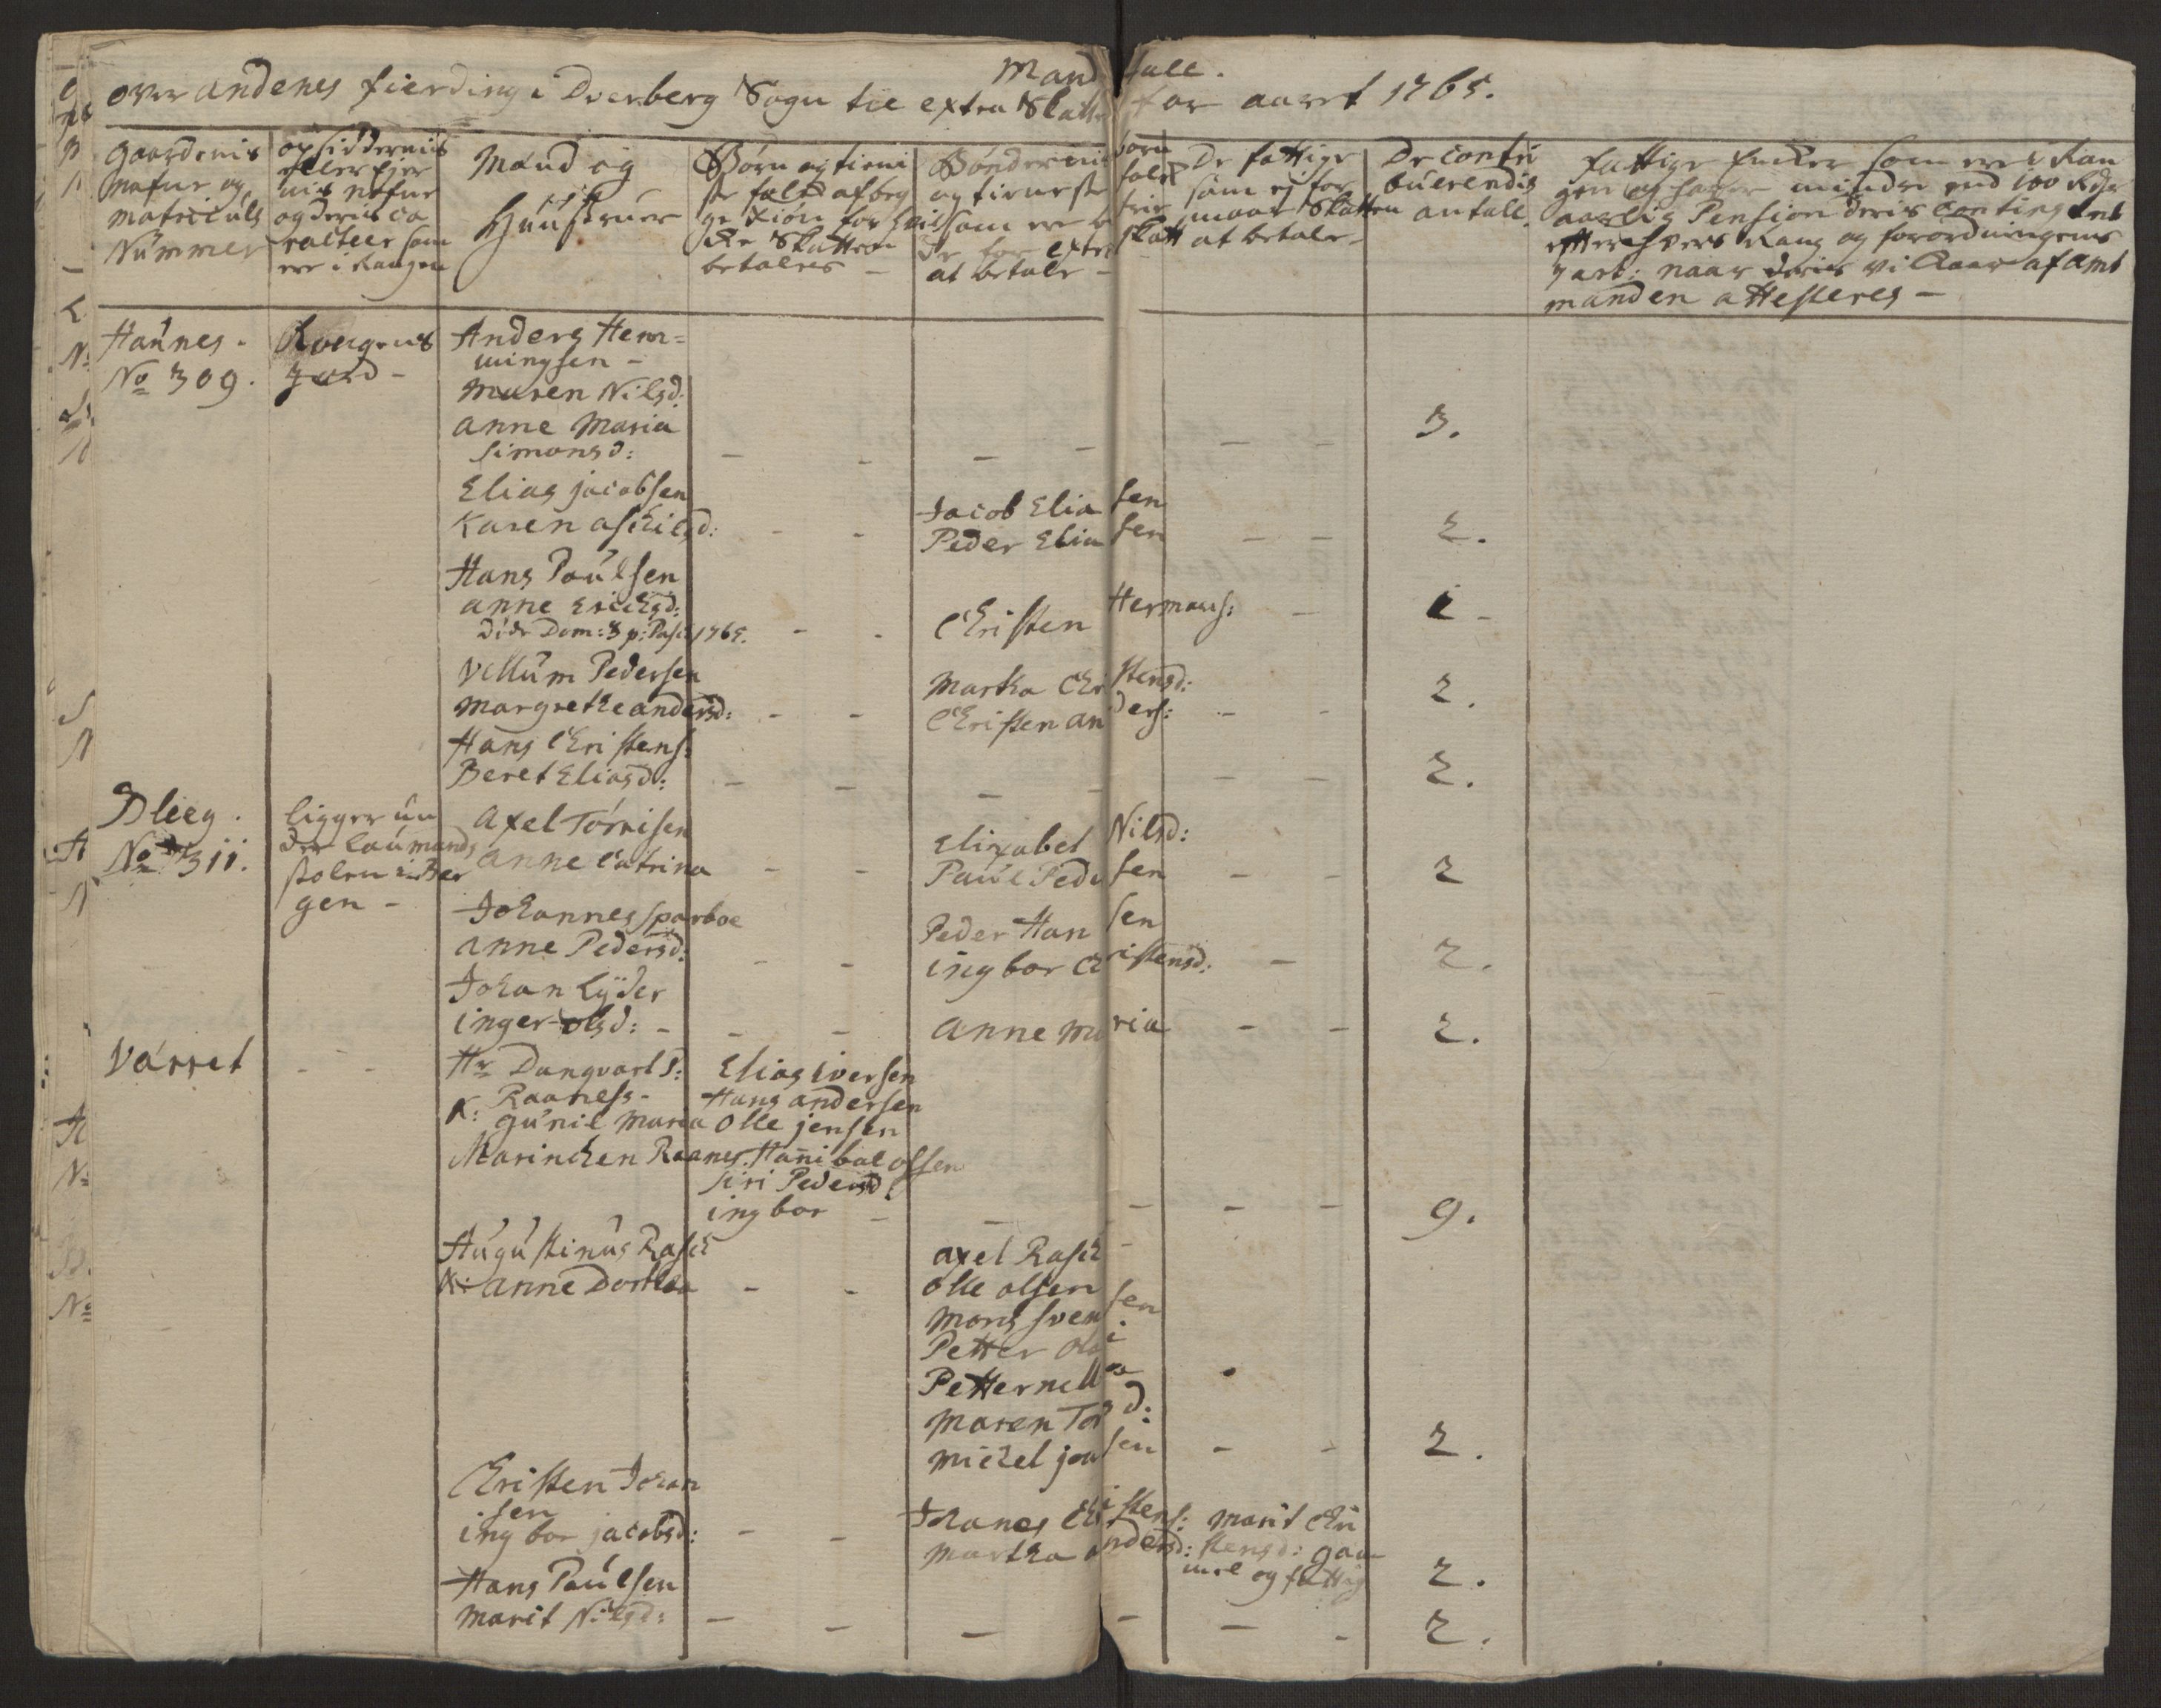 Mandtall.
over andenes fierding i Dverberg Sogn til extra Skatten for aaret 1765.
Gaardenis
Nafne og
Matriculs
Nummer
opsiddernis
eller Ejer
nis nafne
og deris ca
racteer som
ere i Rangen
Mænd og
Huustruer
Børn og tieni
ste folk af beg
ge Kiøn for hvil
ke Skatten
betales -
Bøndernis børn
og tieneste folk
som ere frie
for extra Skatt
at betale -
De fattige
som ej for
maar Skatten
at betale -
De contri
buerendis
antall.
fattige Enker som ere i Ran
gen og haver mindre end 100 Rdr
aarlig Pension deris Contingent
efter hvers Rang og forordningens
7 art: naar deris vilkaar af Amt
manden attesteres -
Haunes.
No 309.
Kongens
Jord -
Anders Hem=
mingsen -
Maren Nilsd:
Anne Maria
Simonsd: - - - - - - 3.
Elias Jacobsen Jacob Eliasen
Karen Aschilsd: - - Peder Eliasen - - 2.
Hans Paulsen
Anne Erichsd: Christen Hermans: - 1 -
Døde Dom: 3 p: Pasc: 1765. - -
Villum Pedersen Martha Christensd:
Margrethe Andersd: - - Christen Anders: - - 2.
Hans Christens:
Beret Eliasd: - - - - - - 2.
Bleeg.
No 311.
ligger un
der Laumands
stolen i Ber
gen -
Axel Tørrisen Elisabet Nilsd:
Anne Catrina - - Paul Pedersen - - 2
Johannes Sparboe Peder Hansen
Anne Pedersd: - - Ingbor Christensd: - 2.
Johan Lyder
Inger Olsd: - - - Anne Maria - - 2.
Værret - - Hr Danqvart S: Elias Iversen
Raaness - Hans Andersen
K: Gunil Maria Olle Jensen
Marinchen Raanes. Hannibal Olsen
Siri Pedersd:
Ingbor - - - - - 9.
Augustinus Rasch Axel Rasch -
K: Anne Dorthea - - Olle Olsen
Mons Svensen
Petter
Petternilla
Maren
Michel Jonsen - - 2.
Christen Johan
sen Johanes Christens: Marit Chri
Ingbor Jacobsd: - - Martha Andersd: stensd: gam
mel og fattig 2.
Hans Paulsen
Marit Nilsd: - - - - - - 2.